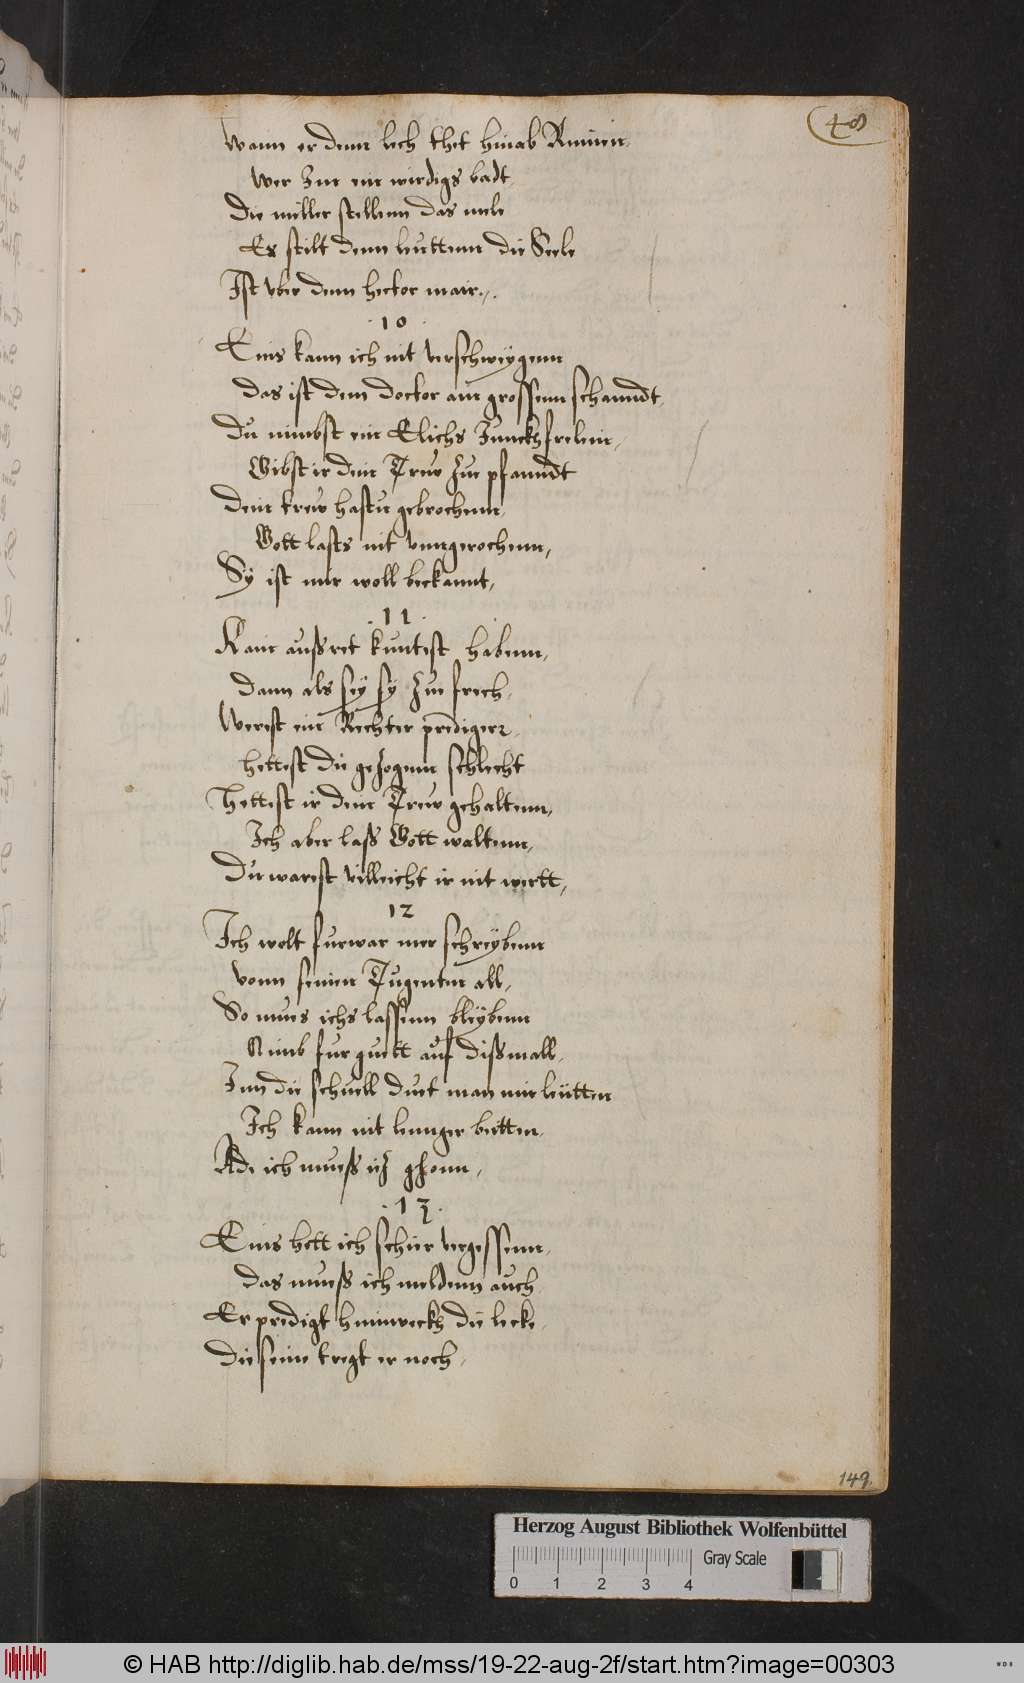 48
Wann er denn lech thet hinab Rinnen
Wer Im ein wirdigs badt
Die miller stellenn das mele
Es stilt denn leuttenn die Seele
Ist vber denn hector mair
10
Eins kann ich nit verschweÿgenn
das ist dem doctor ain grossenn schanndt
Du nimbst ein Elichs Junckhfrelein
Gibst ir dein Trew zue pfanndt
Dein trew hastu gebrochenn
Gott lasts nit vnngerochenn
Sy ist mir woll beckannt
11
Kain außret kuntest habenn
dann als seÿ sÿ zue frech
Werest ein Rechter prediger
hettest die gezogenn schlecht
Hettest ir dein Trew gehaltenn
Ich aber laß Gott waltenn
Du warest villeicht ir nit wertt
12
Ich wolt furwar mer schreÿbenn
vonn seinen Tugenten all
So mues ichs lassenn bleÿbenn
Nimb fur guett auf dißmall
Inn die schuell duet man mir leütten
Ich kann nit lennger beitten
Ade ich mueß iz gehonn
13
Eins hett ich schier vergessenn
das mueß ich meldenn auch
Er predigt hinnweckh die lecke
die seine tregt er noch
149
Herzog August Bibliothek Wolfenbüttel
Gray Scale
0 1 2 3 4
© HAB http://diglib.hab.de/mss/19-22-aug-2f/start.htm?image=00303